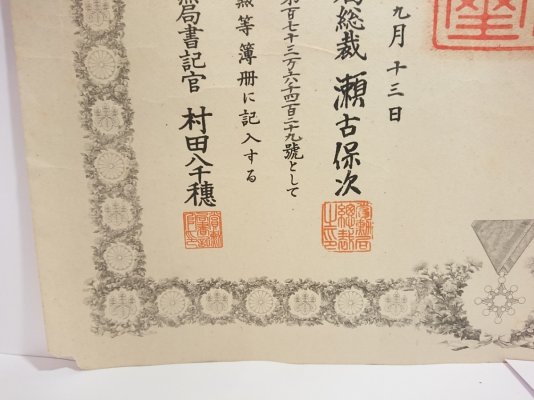 九月十三日
局総裁 瀬古保次
第百七十三万六千四百二十九號として
勲等簿冊に記入する
勲局書記官 村田八千穂